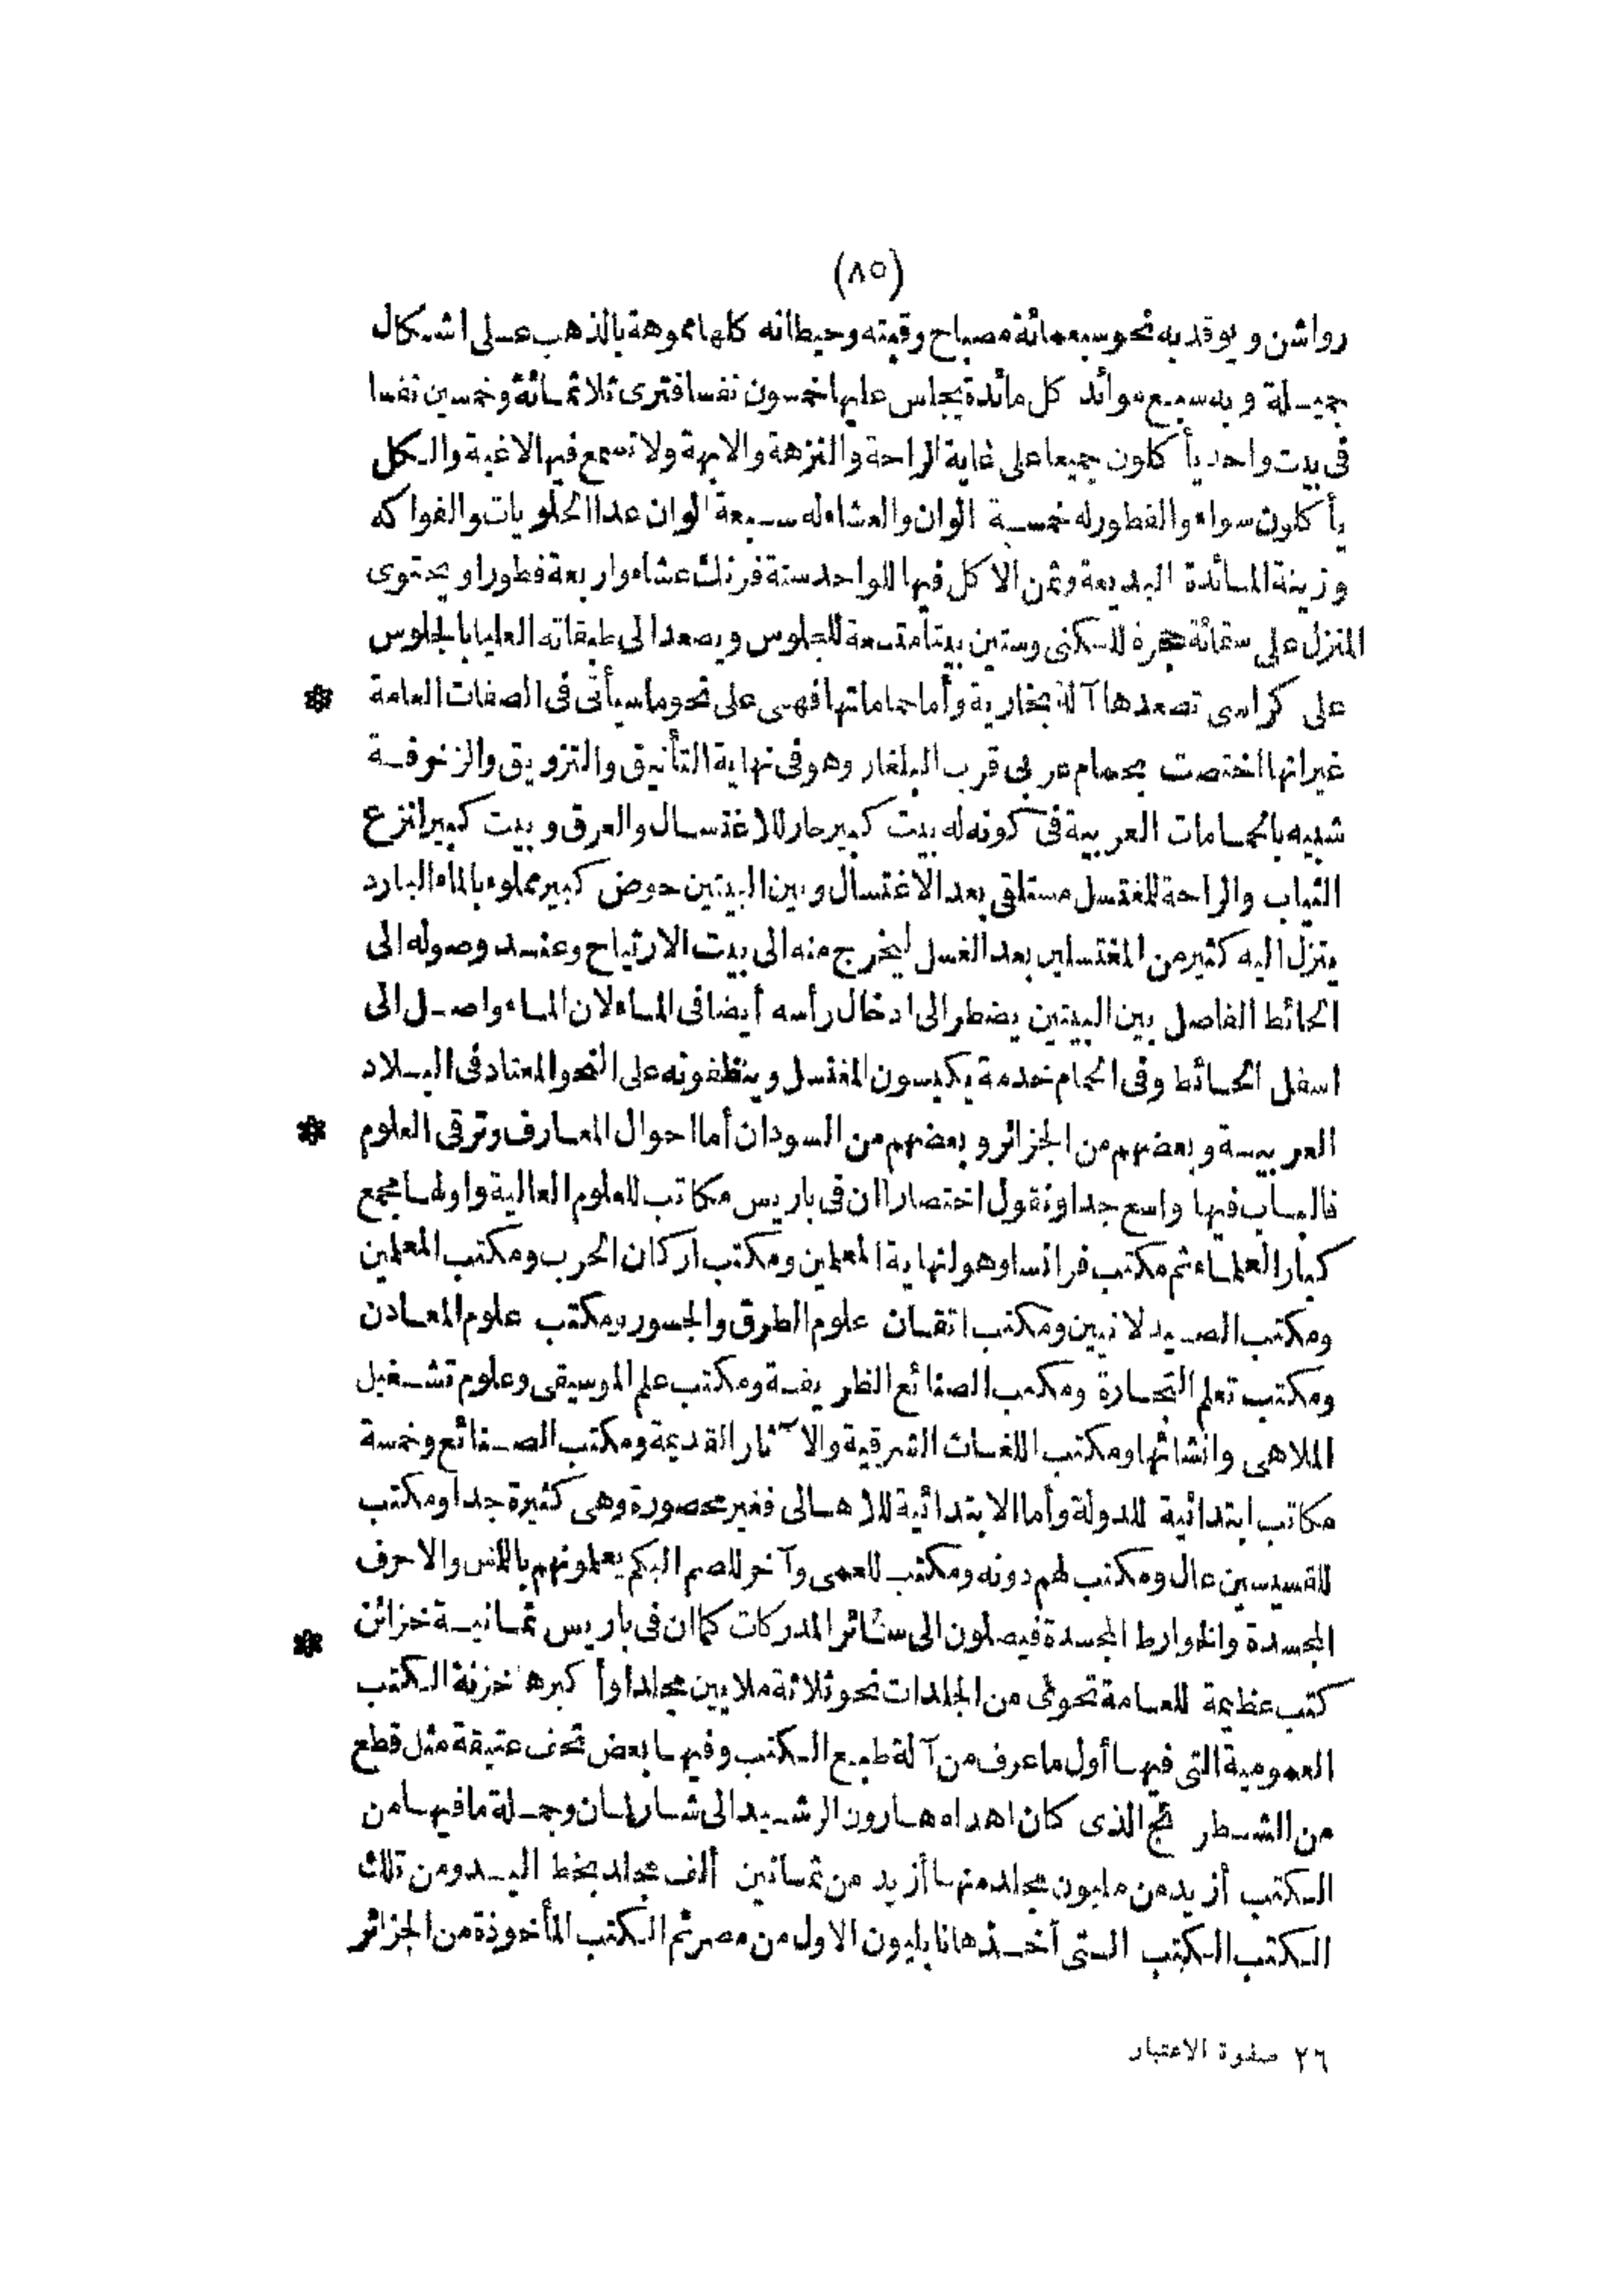 (٨٥)
رواشن ويوقد به نحو سبعمائة مصباح وقبته وحيطانه كلها مموهة بالذهب على اشكال
جميلة وبه سبع موائد كل مائدة يجلس عليها خمسون نفسا فترى ثلاثمائة وخمسين نفسا
فى بيت واحد يأكلون جميعا على غاية الراحة والنزهة والابهة ولا تسمع فيها لاغية والكل
يأكلون سواء والفطور له خمسة الوان والعشاء له سبعة الوان عدا الحلويات والفواكه
وزينة المائدة البديعة وثمن الاكل فيها للواحد ستة فرنك عشاء واربعة فطورا ويحتوى
المنزل على ستمائة حجرة للسكنى وستين بيتا متسعة للجلوس ويصعد الى طبقاته العليا بالجلوس
على كراسى تصعدها آلة بخارية وأما حماماتها فهى على نحو ما سيأتى فى الصفات العامة *
غير انها اختصت بحمام عربى قرب البلغار وهو فى نهاية التأنيق والتزويق والزخرفة
شبيه بالحمامات العربية فى كونه له بيت كبير حار للاغتسال والعرق وبيت كبير لنزع
الثياب والراحة للمغتسل مستلقى بعد الاغتسال وبين البيتين حوض كبير مملوء بالماء البارد
ينزل اليه كثير من المغتسلين بعد الغسل ليخرج منه الى بيت الارتياح وعند وصوله الى
الحائط الفاصل بين البيتين يضطر الى ادخال رأسه أيضا فى الماء لان الماء واصل الى
اسفل الحائط وفى الحمام خدمة يكيسون المغتسل وينظفونه على النحو المعتاد فى البلاد
العربية وبعضهم من الجزائر وبعضهم من السودان أما احوال المعارف وترقى العلوم *
فالباب فيها واسع جدا ونقول اختصارا ان فى باريس مكاتب للعلوم العالية واولها مجمع
كبار العلماء ثم مكتب فرانسا وهو لنهاية المعلمين ومكتب اركان الحرب ومكتب المعلمين
ومكتب الصيدلانيين ومكتب اتقان علوم الطرق والجسور ومكتب علوم المعادن
ومكتب تعلم التجارة ومكتب الصنائع الظريفة ومكتب علم الموسيقى وعلوم تشغيل
الملاهى وانشائها ومكتب اللغات الشرقية والآثار القديمة ومكتب الصنائع وخمسة
مكاتب ابتدائية للدولة وأما الابتدائية للاهالى فغير محصورة وهى كثيرة جدا ومكتب
للقسيسين عال ومكتب لهم دونه ومكتب للعمى وآخر للصم البكم يعلمونهم باللمس والاحرف
المجسدة والخوارط المجسدة فيصلون الى سائر المدركات كما ان فى باريس ثمانية خزائن *
كتب عظيمة للعامة تحوى من المجلدات نحو ثلاثة ملايين مجلدا وأكبرها خزنة الكتب
العمومية التى فيها أول ما عرف من آلة طبع الكتب وفيها بعض تحف عتيقة مثل قطع
من الشطرنج الذى كان اهداه هارون الرشيد الى شارلمان وجملة ما فيها من
الكتب أزيد من مليون مجلد منها أزيد من ثمانين ألف مجلد بخط اليد ومن تلك
الكتب الكتب التى أخذها نابليون الاول من مصر ثم الكتب المأخوذة من الجزائر
٢٦ صفوة الاعتبار